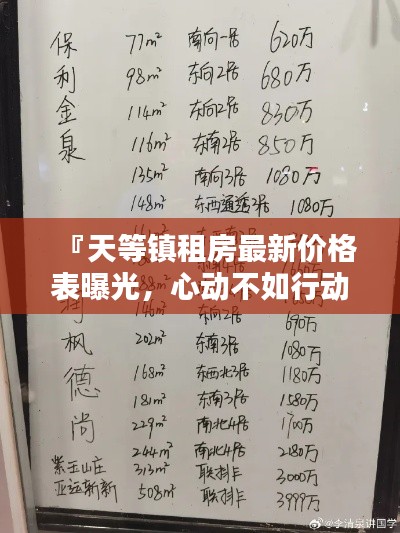 保利金泉
77m² 南向一居 620万
98m² 东向2居 680万
114m² 东向2居 830万
116m² 东南2居 850万
135m² 南向3居 1080万
148m² 东西通透3居 1080万
『天等镇租房最新价格
表曝光，心动不如行动
枫德尚
146m² 690万
202m² 东南3居 1080万
168m² 东西北3居 1180万
181m² 东南3居 1580万
229m² 南北4居 1700万
244m² 南北4居 2180万
紫玉山庄 313m² 联排卡 3000万
亚运新新 508m² 联排卡 3999万
@李清泉讲国学